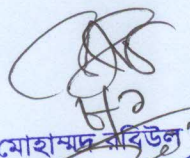 মোহাম্মদ রবিউল